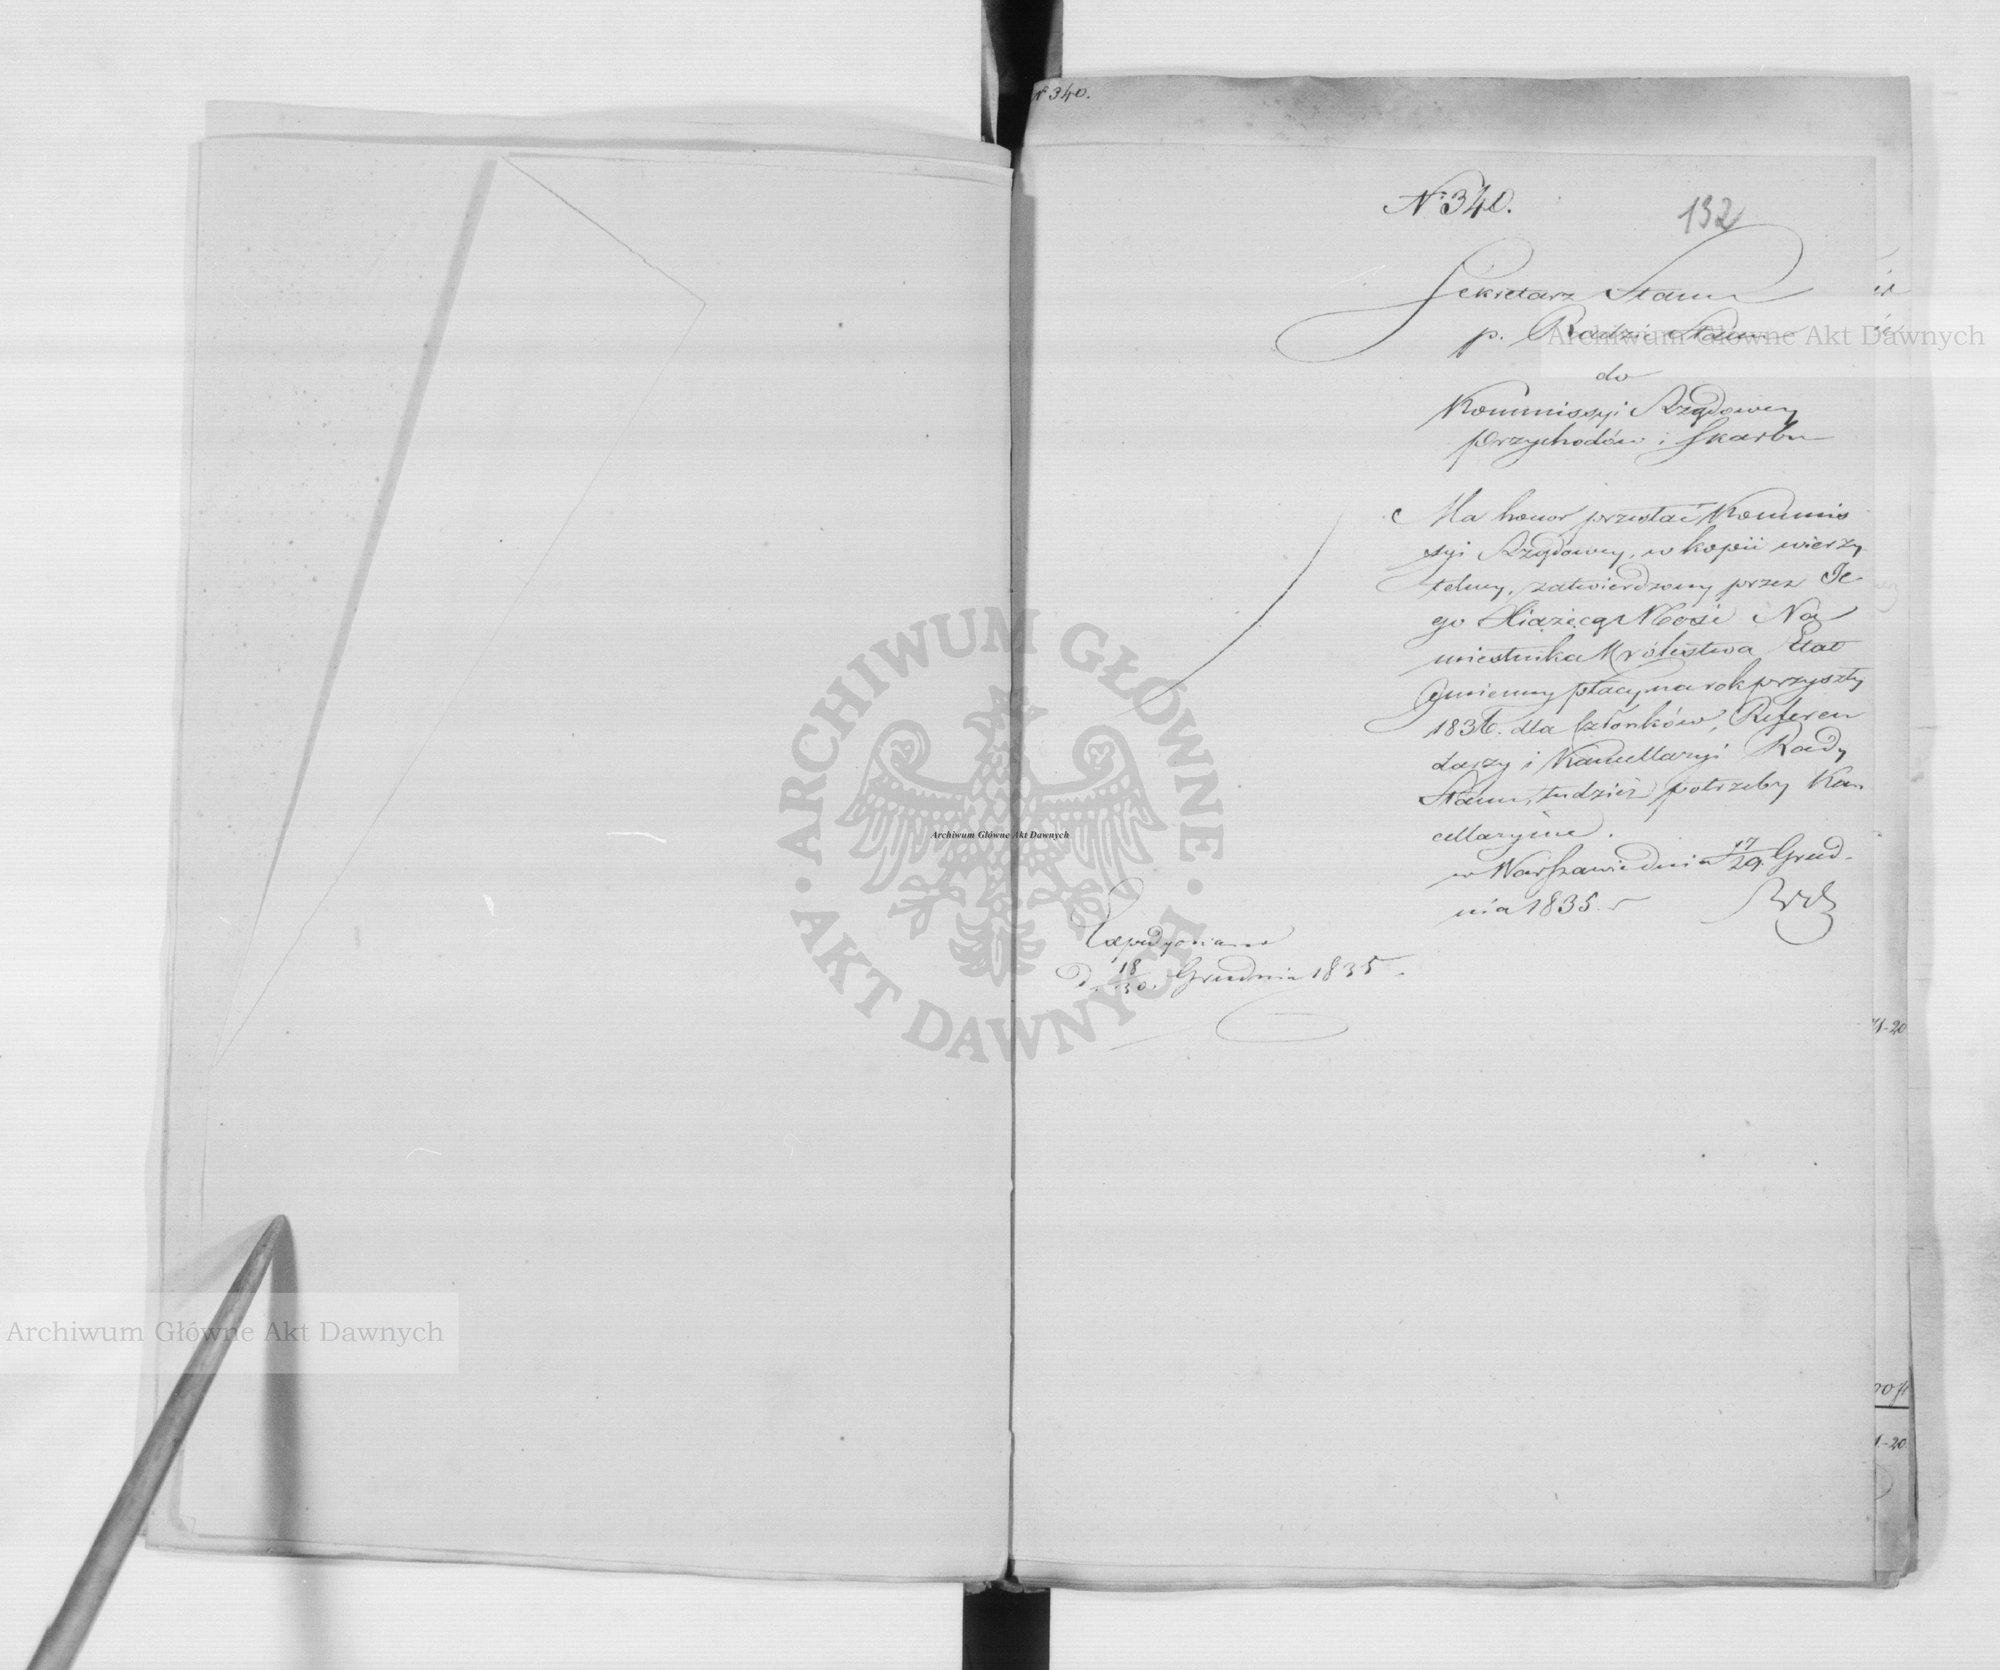 № 340.
№ 340.
132
Sekretarz Stanu
p. Radzie Stanu
do
Kommissyi Rządowey
Przychodów i Skarbu
Ma honor przesłać Kommis
syi Rządowey, w kopii wierzy
telney, zatwierdzony przez Je
go Xiążęcą Mość Na
miestnika Królestwa Etat
Imienny płacy na rok przyszły
1836. dla Członków, Referen
darzy i Kancellaryi Rady
Stanu, tudzież potrzeby Kan
cellaryine.
w Warszawie dnia 17/29 Grud-
nia 1835. r
Expedyowano
d. 18/30. Grudnia 1835.
1-20
1.-20
Archiwum Główne Akt Dawnych
ARCHIWUM GŁÓWNE
AKT DAWNYCH
Archiwum Główne Akt Dawnych
Archiwum Główne Akt Dawnych